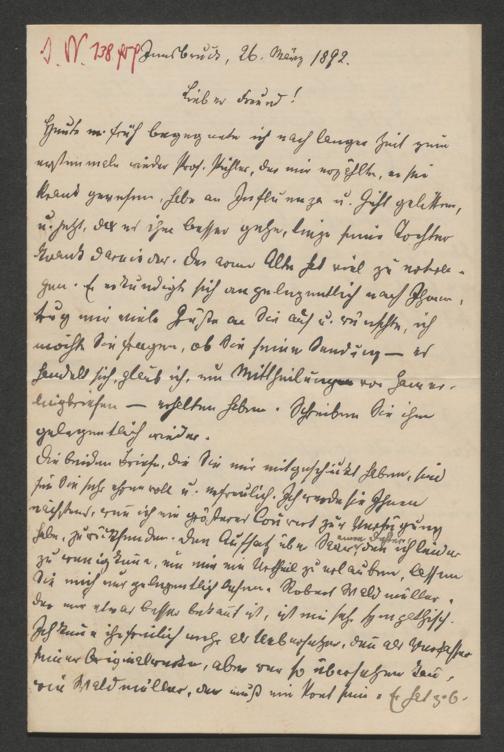 I. N. 138
Innsbruck, 26. März 1892.
Lieber Freund!
Heute in früh begegnete ich nach langer Zeit zum
erstenmale wieder Prof. Pichler, der mir erzählte, er sei
krank gewesen, habe an Influenza u. Gicht gelitten,
u. jetzt, da es ihm besser gehe, liege seine Tochter
krank darnieder. Der arme Alte hat viel zu ertra-
gen. Er erkundigte sich angelegentlich nach Ihnen,
trug mir viele Grüße an Sie auf u. wünschte, ich
möchte Sie fragen, ob Sie seine Sendung — es
handelt sich, glaub ich, um Mittheilungen von Hamer-
lingbriefen — erhalten haben. Schreiben Sie ihm
gelegentlich wieder.
Die beiden Briefe, die Sie mir mitgeschickt haben, sind
für Sie sehr ehrenvoll u. erfreulich. Ich werde sie Ihnen
nächstens, wenn ich ein größeres Couvert zur Verfügung
habe, zurücksenden. Den Aufsatz über Saar, den ich leider
zu wenig kenne, um mir ein Urtheil zu erlauben, lassen
Sie mich nur gelegentlich sehen. Robert Waldmüller,
der mir etwas besser bekannt ist, ist mir sehr sympathisch.
Ich kenne ihn freilich mehr als Uebersetzer, denn als Verfasser
seiner Originalwerke, aber wer so übersetzen kann,
wie Waldmüller, der muß ein Poet sein. Er hat z. B.